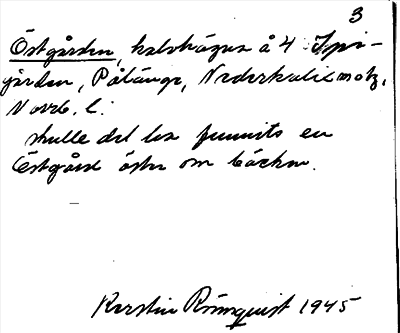 3
Östgården, kalvhägna å 4
gården, Pålänge, Nederkalix sn,
Norrb. l.
skulle det ha funnits en
Östgård öster om bäcken.
Kerstin Rönnquist 1945